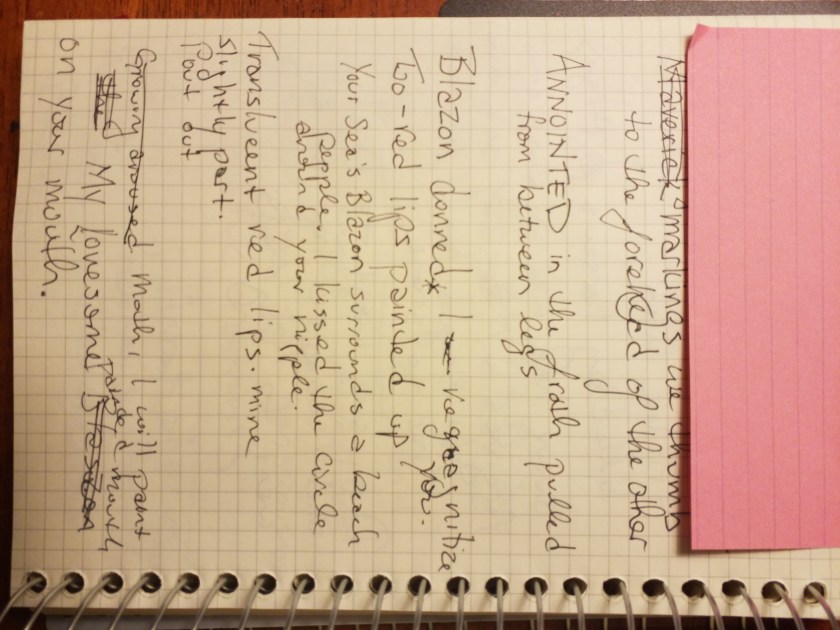 Maverick markings we thumb
to the forehead of the other
ANNOINTED in the froth pulled
from between legs
Blazon donned I recognitize
Too-red lips painted up you.
Your Sea's Blazon surrounds a beach
pepple. I kissed the circle
around your nipple.
Translucent red lips. mine
slightly part.
Part out
Growing aroused moth, I will paint
the My lovesome painted mouth
Blazon
on your mouth.